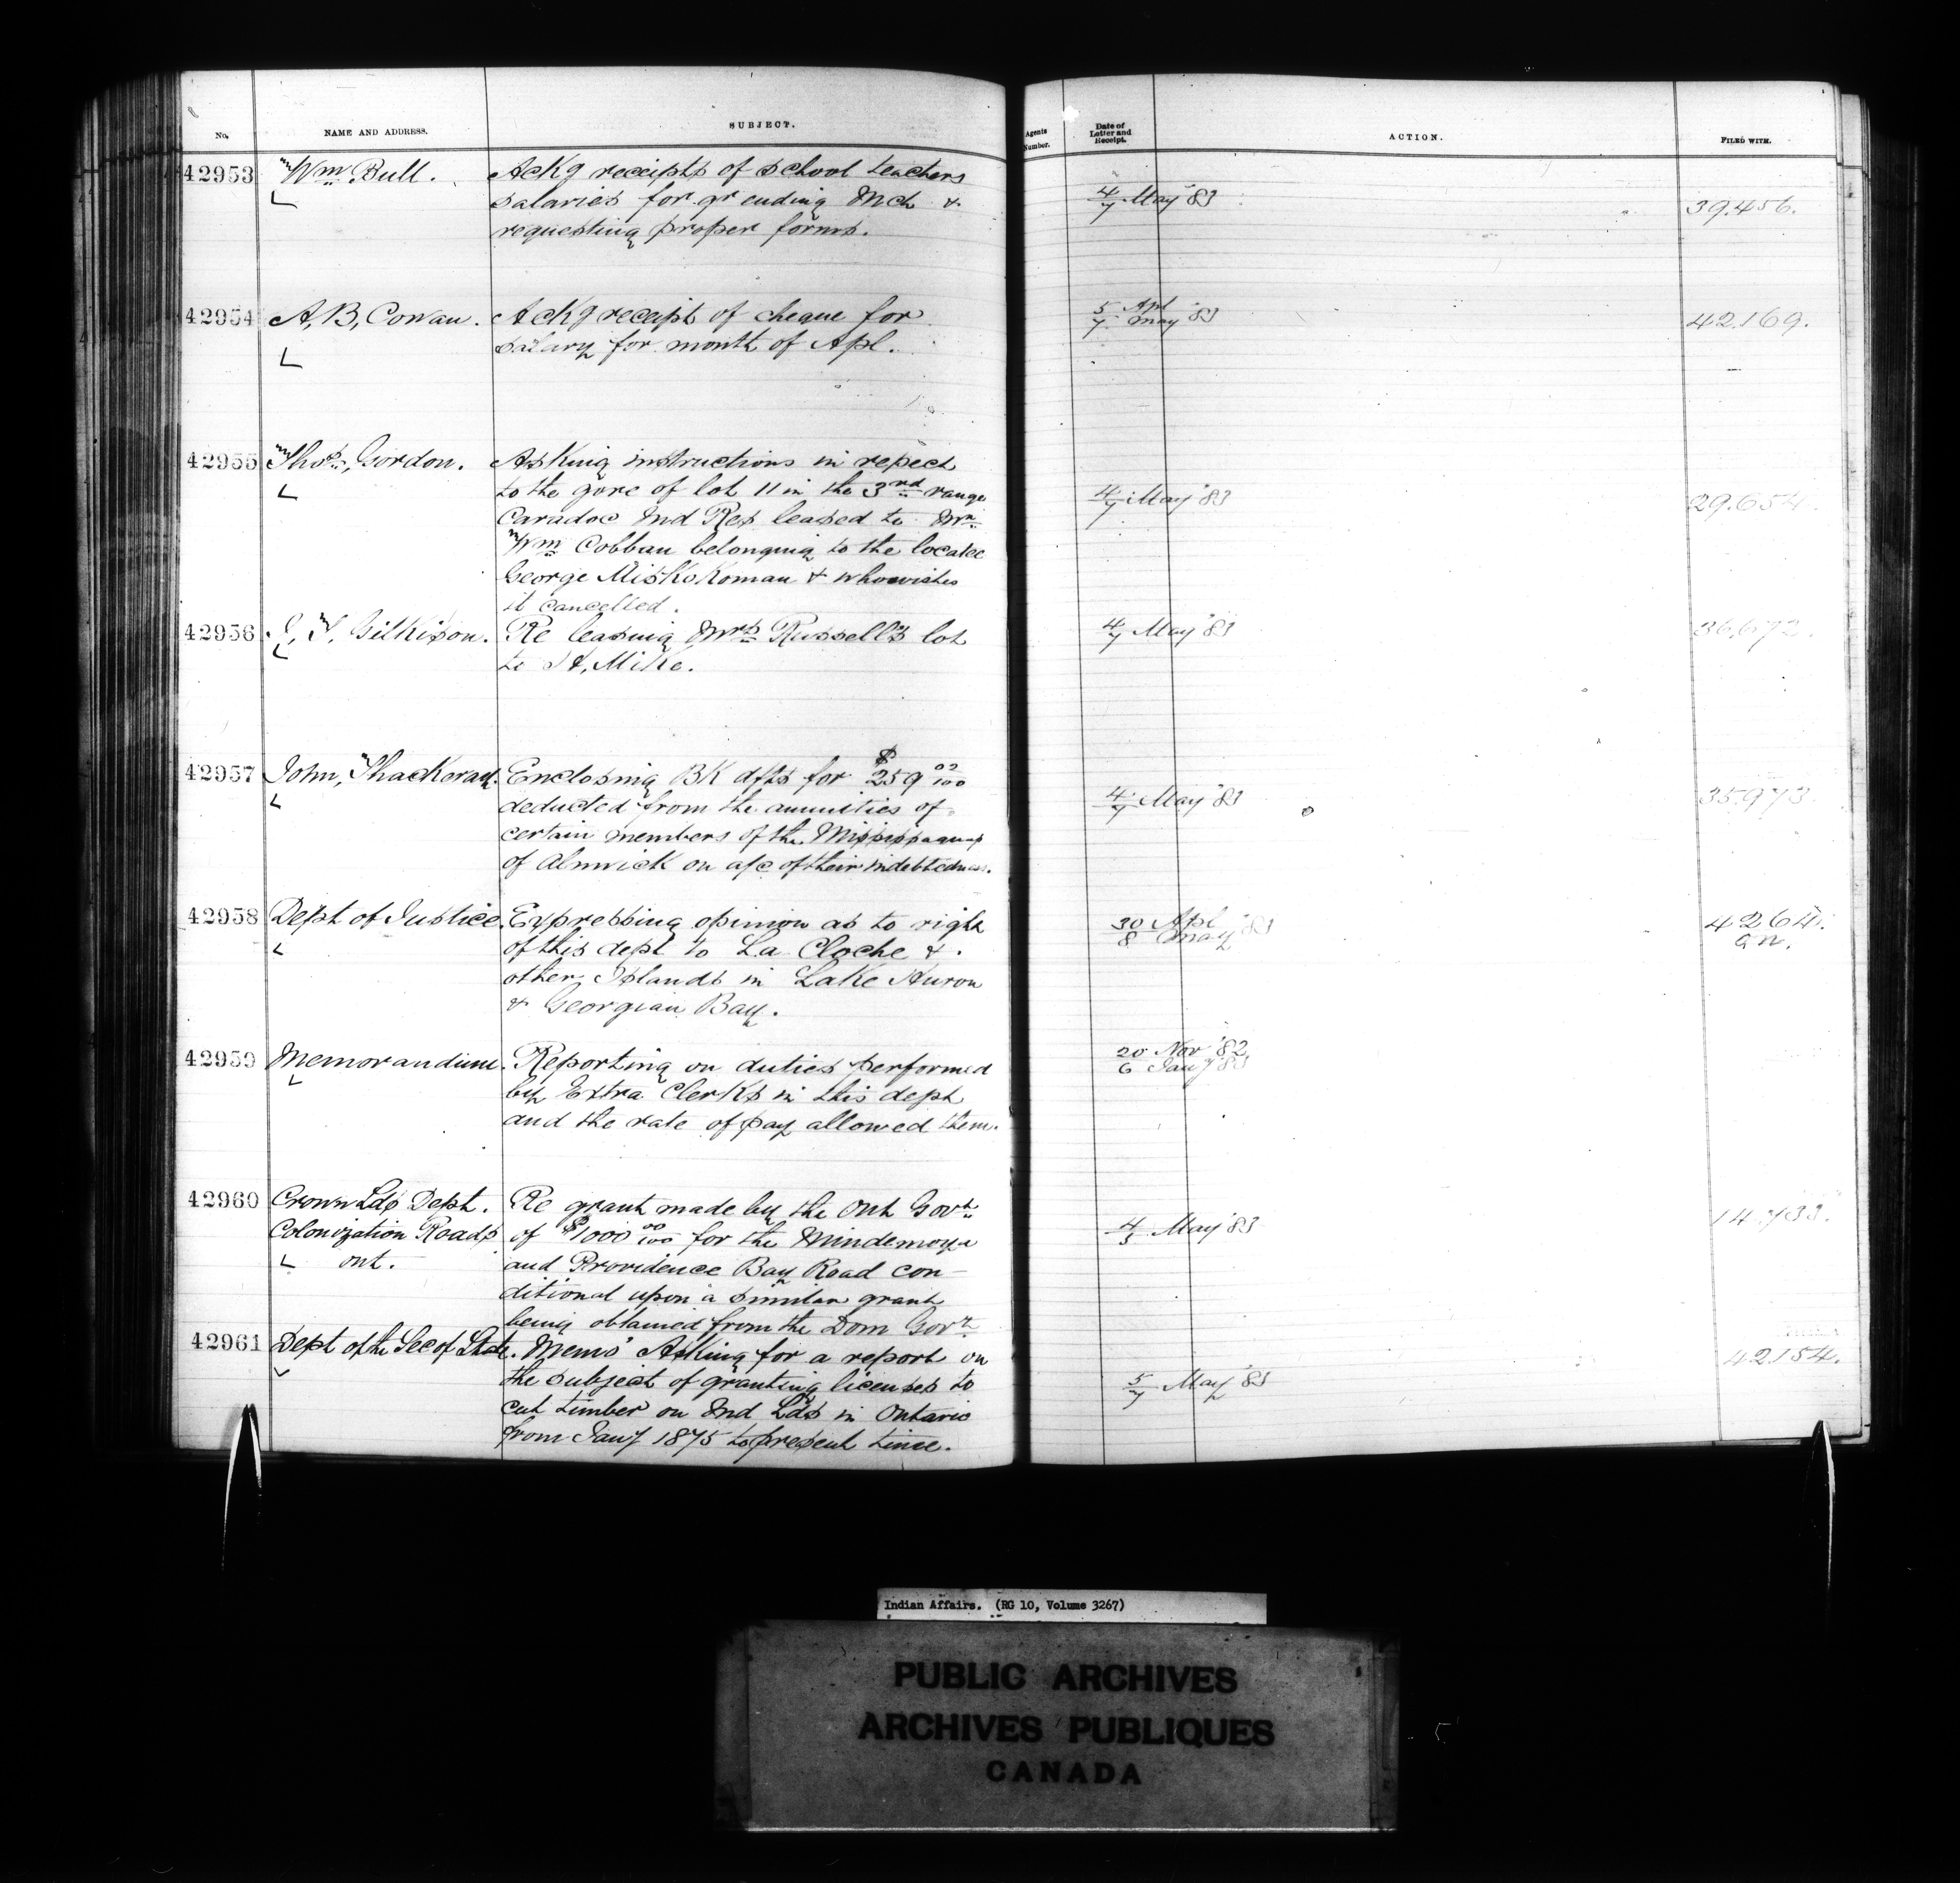 No. NAME AND ADDRESS. SUBJECT. Agents Number. Date of Letter and Receipt. ACTION. FILED WITH.
42953 Wm Bull. Ackg receipts of school teachers
salaries for qr ending Mch &
requesting proper forms.
4/7 May '83 39.456.
42954 A, B, Cowan. Ackg receipt of cheque for
salary for month of Apl.
5 Apl
7 May '83 42.169.
42955 Thos, Gordon. Asking instructions in repect
to the gore of lot 11 in the 3rd range
Caradoc Ind Res leased to Mr
Wm Cobban belonging to the locatee
George Miskokoman & who wishes
it cancelled.
4/7 May '83 29.654.
42956 J, T, Gilkison. Re leasing Mrs Russell's lot
to H, Mike.
4/7 May '83 36.672.
42957 John, Thackeray. Enclosing Bk dfts for $259 02/100
deducted from the annuities of
certain members of the Mississaguas
of Alnwick on a/c of their indebtedness.
4/7 May '83 35.973.
42958 Dept of Justice. Expressing opinion as to right
of this dept to La Cloche &
other Islands in Lake Huron
& Georgian Bay.
30 Apl
8 May '83 4264.
42959 Memorandum. Reporting on duties performed
by Extra Clerks in this dept
and the rate of pay allowed them.
20 Nov '82
6 Jany '83
42960 Crown Lds Dept. Re grant made by the Ont Govt
Colonization Roads of $1000 00/100 for the Mindemoya
ont. and Providence Bay Road con-
ditional upon a similar grant
being obtained from the Dom Govt
4/5 May '83 14.733.
42961 Dept of the Sec of State. Memo' Asking for a report on
the subject of granting licenses to
cut timber on Ind Lds in Ontario
from Jany 1875 to present time.
5/7 May '83 42154.
Indian Affairs. (RG 10, Volume 3267)
PUBLIC ARCHIVES
ARCHIVES PUBLIQUES
CANADA